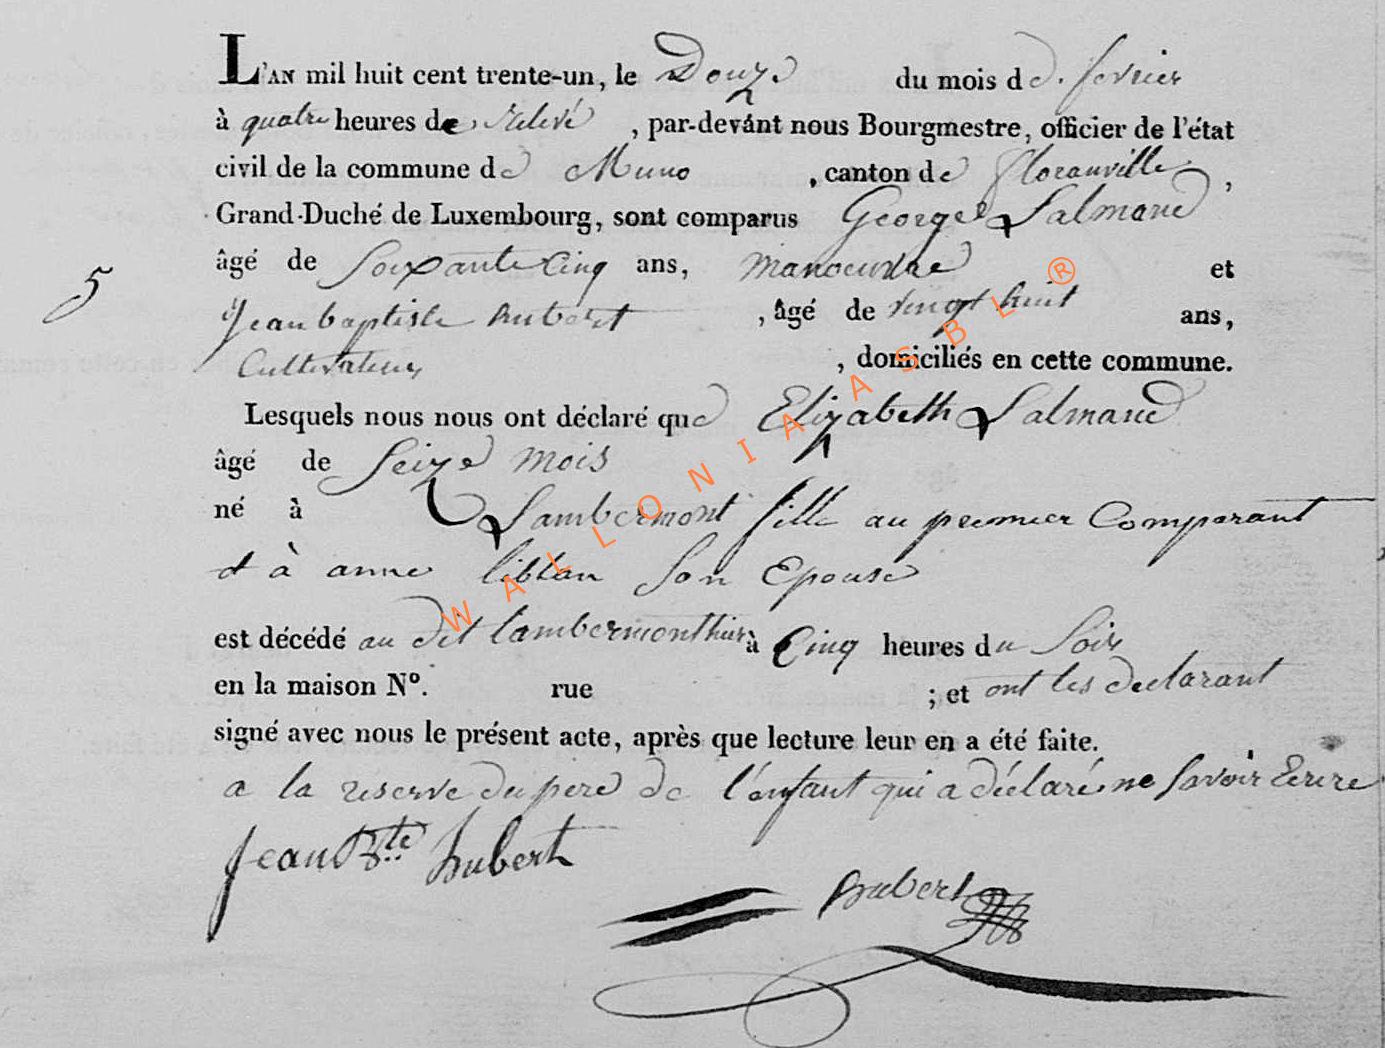 L'AN mil huit cent trente-un, le Douze du mois de fevrier
à quatre heures de relevé, par-devant nous Bourgmestre, officier de l'état
civil de la commune de Muno, canton de floranville,
Grand-Duché de Luxembourg, sont comparus George Salmand
âgé de Soixante Cinq ans, manoeuvre et
5
Jean baptiste hubert, âgé de vingt huit ans,
Cultivateur, domiciliés en cette commune.
Lesquels nous nous ont déclaré que Elizabeth Salmand
âgé de Seize mois
né à Lambermont fille au premier Comparant
et à anne liban Son Epouse
est décédé au dit lambermont hier à Cinq heures du Soir
en la maison N°. rue ; et ont les declarant
signé avec nous le présent acte, après que lecture leur en a été faite.
a la reserve du pere de l'enfant qui a déclaré ne Savoir Ecrire
Jean Bte hubert
hubert
WALLONIA ASBL ®